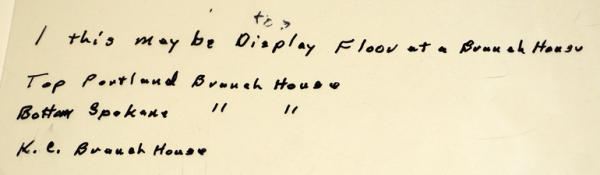 top
1 this may be Display Floor at a Branch House
Top Portland Branch House
Bottom Spokane " "
K.C. Branch House